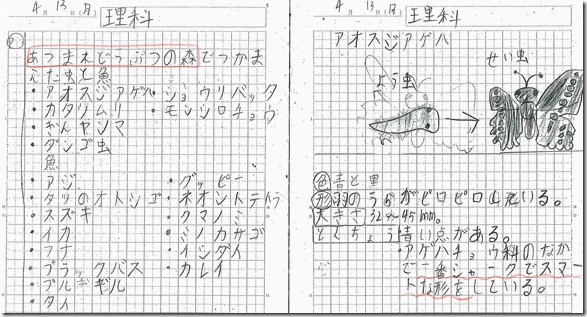 4月13日(月) 理科
あつまれどうぶつの森でつかま
えた虫と魚
・アオスジアゲハ・ショウリバッタ
・カタツムリ ・モンシロチョウ
・ぎんヤンマ
・ダンゴ虫
魚
・アジ ・グッピー
・タツのオトシゴ・ネオンテトラ
・スズキ ・クマノミ
・イカ ・ミノカサゴ
・フナ ・イシダイ
・ブラックバス ・カレイ
・ブルーギル
・タイ
4月13日(月) 理科
アオスジアゲハ
よう虫
せい虫
色 青と黒
形 羽のうらがピロピロしている。
大きさ 32～45mm。
とくちょう 青い点がある。
アゲハチョウ科のなか
で一番シャークでスマー
トな形をしている。